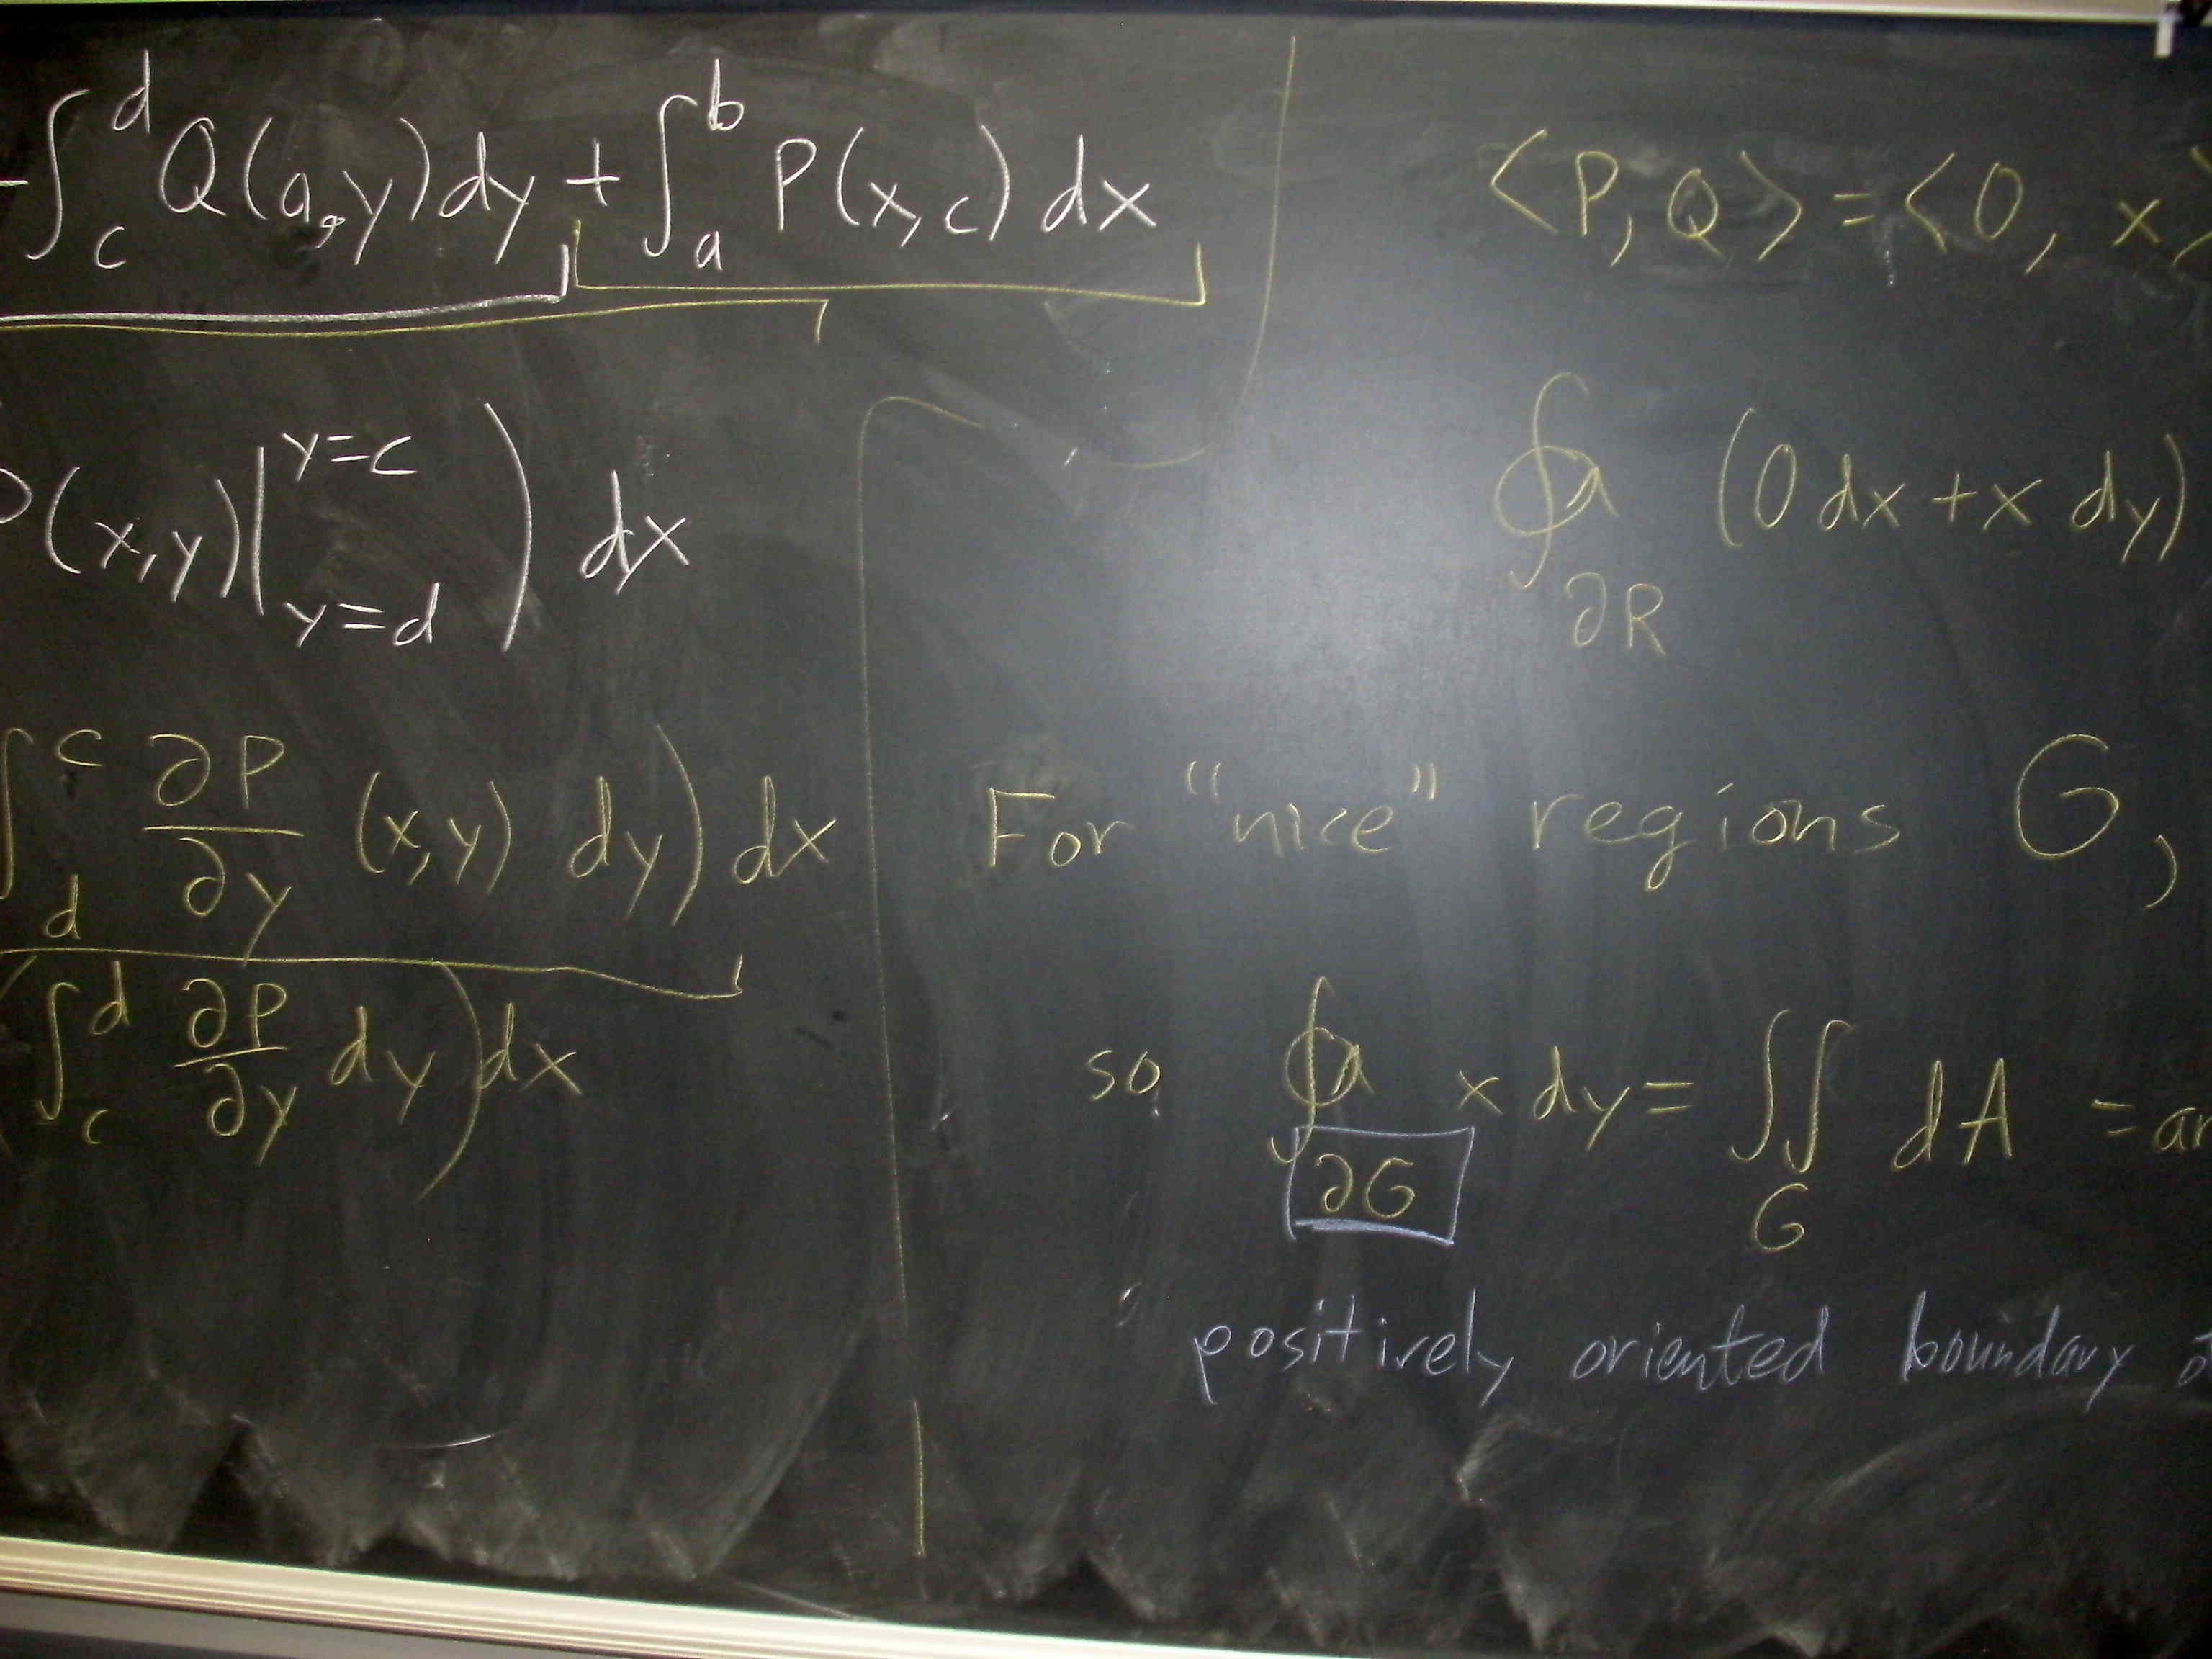 -∫_c^d Q(a,y)dy + ∫_a^b P(x,c) dx
P(x,y)|_{y=d}^{y=c} ) dx
∫_d^c ∂P/∂y (x,y) dy) dx
(∫_c^d ∂P/∂y dy) dx
<P, Q> = <0, x>
∮_{∂R} (0 dx + x dy)
For "nice" regions G,
so ∮_{∂G} x dy = ∬_G dA = ar
positively oriented boundary